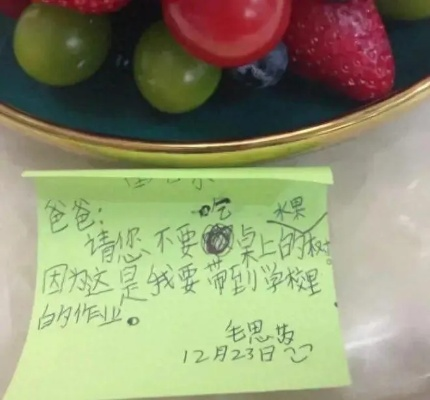 爸爸：
请您不要吃桌上的水果
因为这是我要带到学校里
的作业。
毛思
12月23日